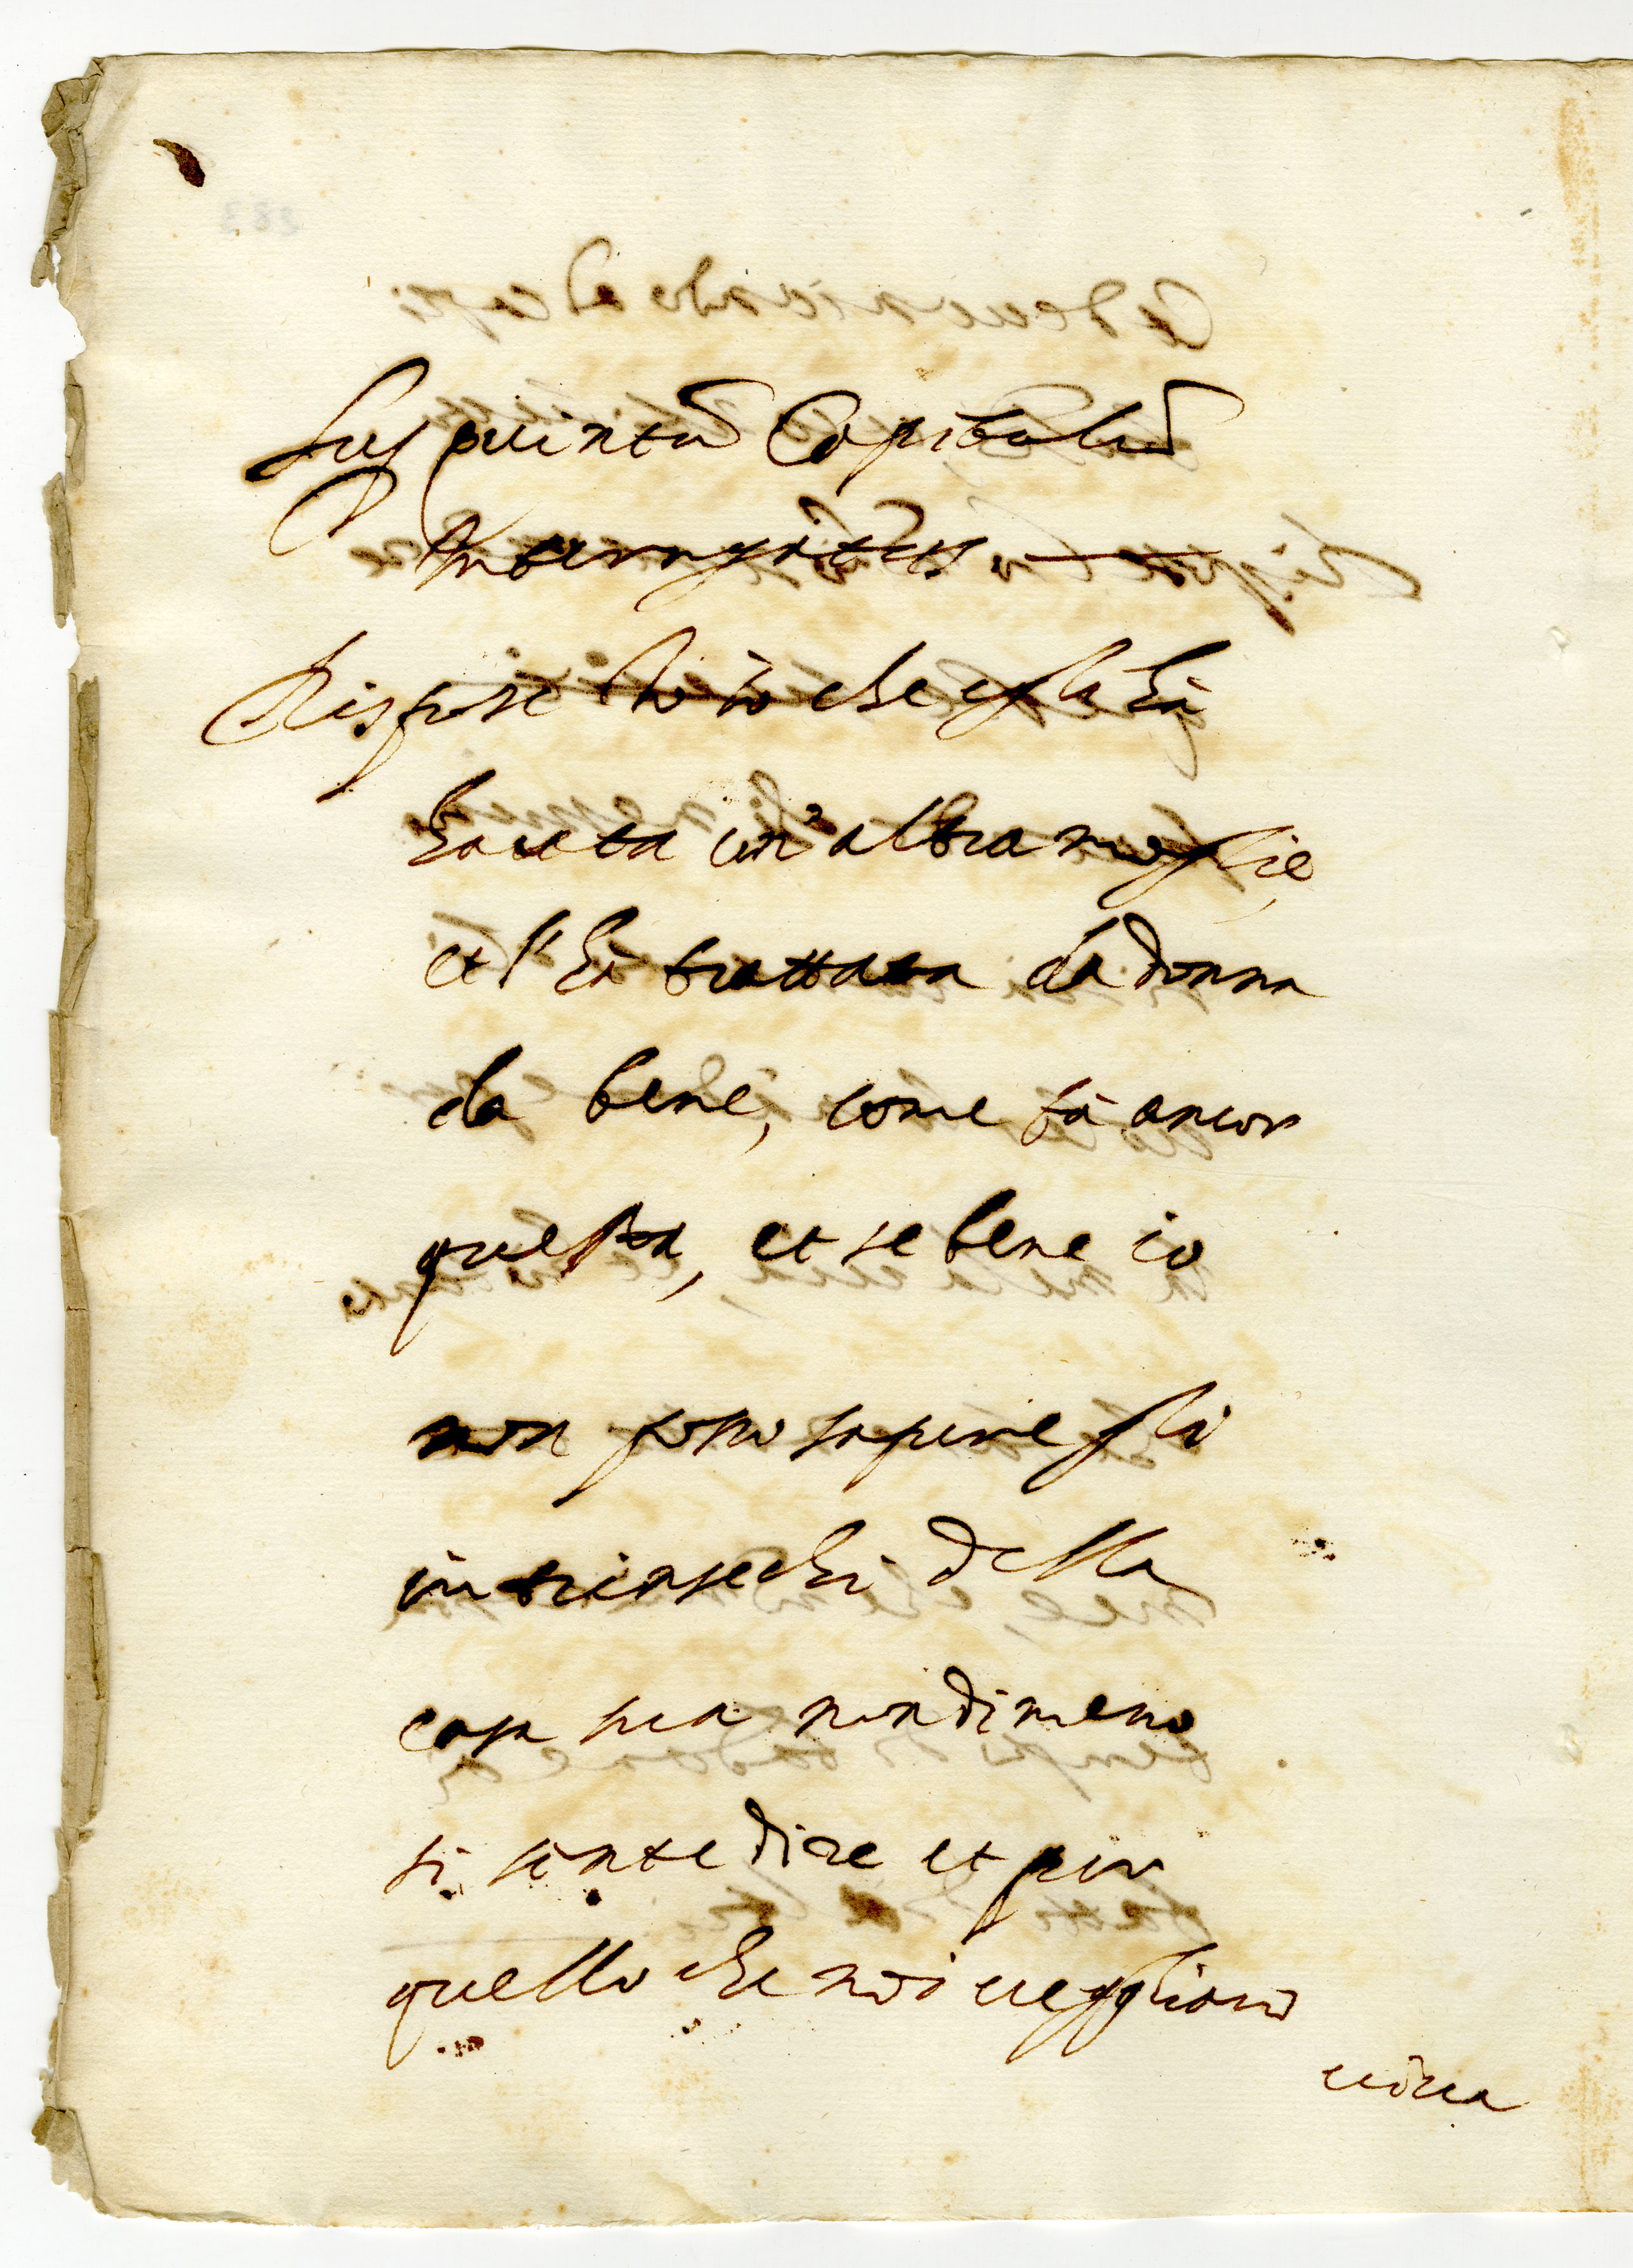 Sup quintũ Capitulũ
Interrogatus.
Rispose Io so che egli hà
hauuta un'altra moglie,
et l'hà trattata da donna
da bene, come fà ancor
questa, et se bene io
non posso sapere gli
intrinsechi della
casa sua nondimeno
si sente dire et per
quello che noi ueggiamo
uiuea